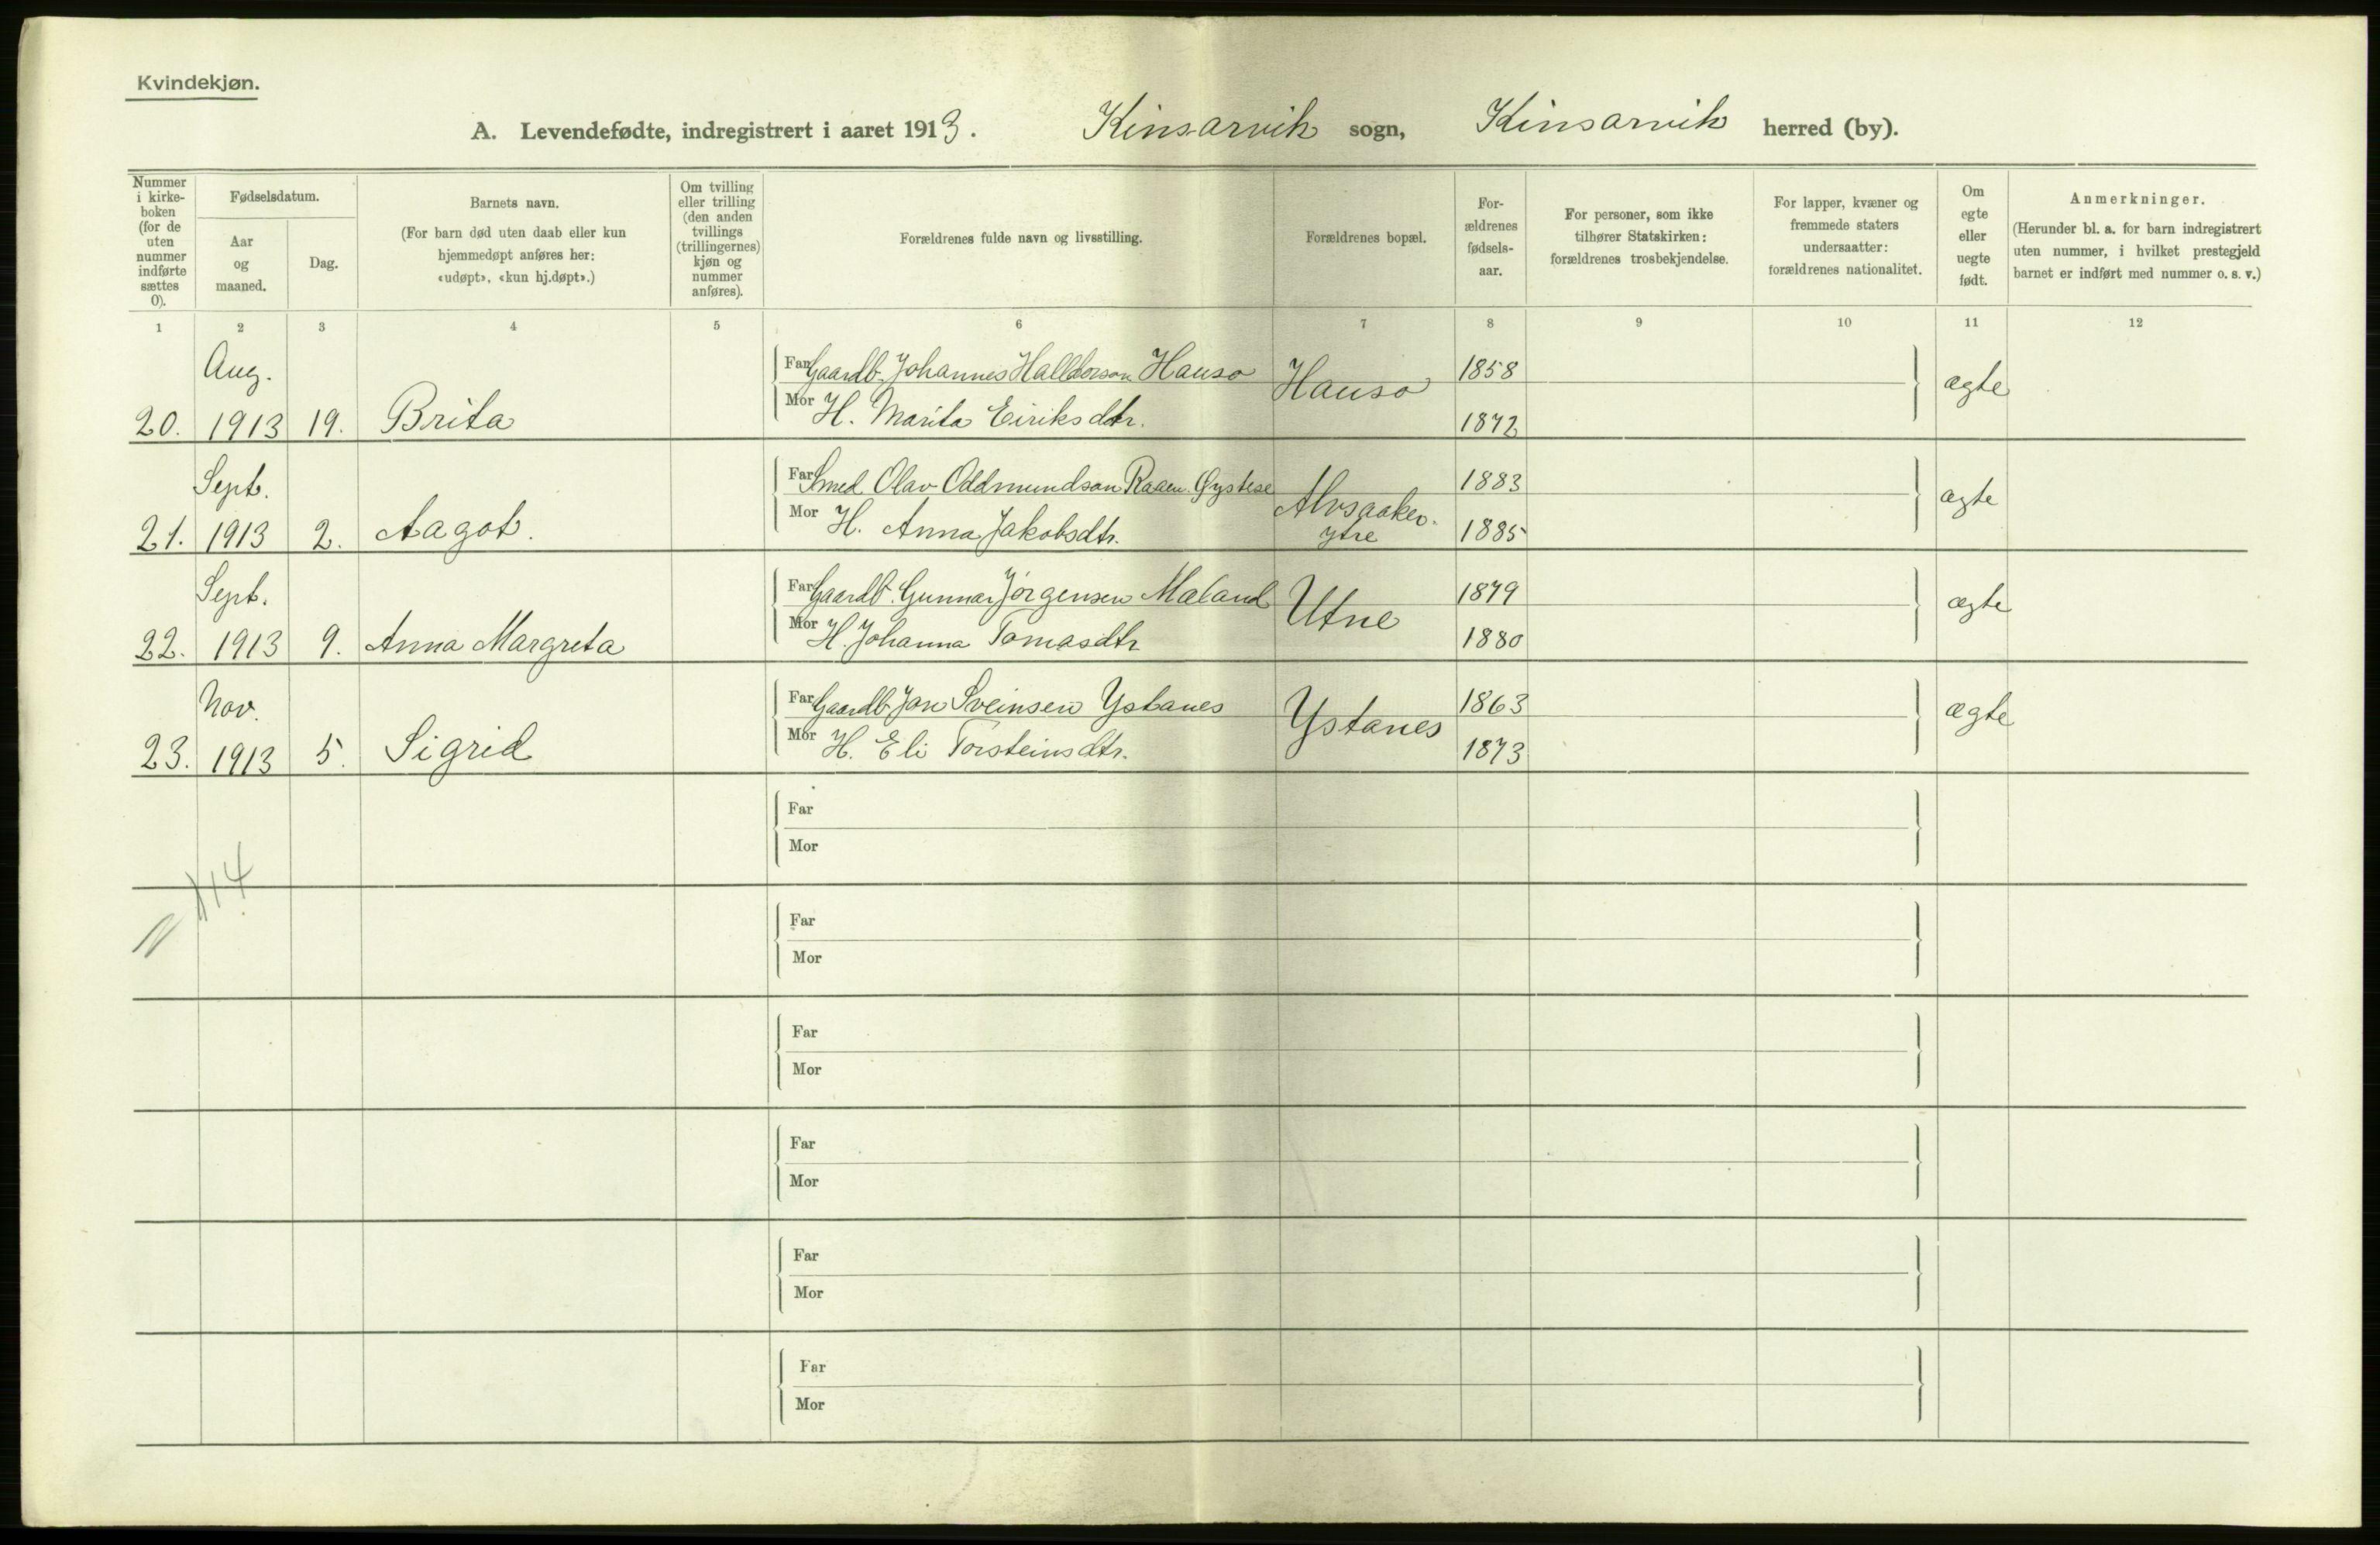 Kvindekjøn.
A. Levendefødte, indregistrert i aaret 1913. Kinsarvik sogn, Kinsarvik herred (by).
Nummer i kirke-boken (for de uten nummer indførte sættes 0).
Fødselsdatum.
Aar og maaned.
Dag.
Barnets navn.
(For barn død uten daab eller kun hjemmedøpt anføres her: «udøpt», «kun hj.døpt».)
Om tvilling eller trilling (den anden tvillings (trillingernes) kjøn og nummer anføres).
Forældrenes fulde navn og livsstilling.
Forældrenes bopæl.
For-ældrenes fødsels-aar.
For personer, som ikke tilhører Statskirken: forældrenes trosbekjendelse.
For lapper, kvæner og fremmede staters undersaatter: forældrenes nationalitet.
Om egte eller uegte født.
Anmerkninger.
(Herunder bl. a. for barn indregistrert uten nummer, i hvilket prestegjeld barnet er indført med nummer o. s. v.)
1 2 3 4 5 6 7 8 9 10 11 12
Aug.
Far Gaardb. Johannes Halldorson Hauso Hauso 1858 ægte
20. 1913 19. Brita Mor H. Marita Eiriksdtr. 1872
Sept.
Far Smed Olav Oddmundson Raaen Øystese Alvsaaker ytre 1883 ægte
21. 1913 2. Aagot. Mor H. Anna Jakobsdtr. 1885
Sept.
Far Gaardb. Gunnar Jørgensen Mæland Utne 1879 ægte
22. 1913 9. Anna Margreta Mor H. Johanna Tomasdtr 1880
Nov.
Far Gaardb. Jon Sveinsen Ystanes Ystanes 1863 ægte
23. 1913 5. Sigrid Mor H. Eli Torsteinsdtr. 1873
Far
Mor
Far
Mor
Far
Mor
Far
Mor
Far
Mor
Far
Mor